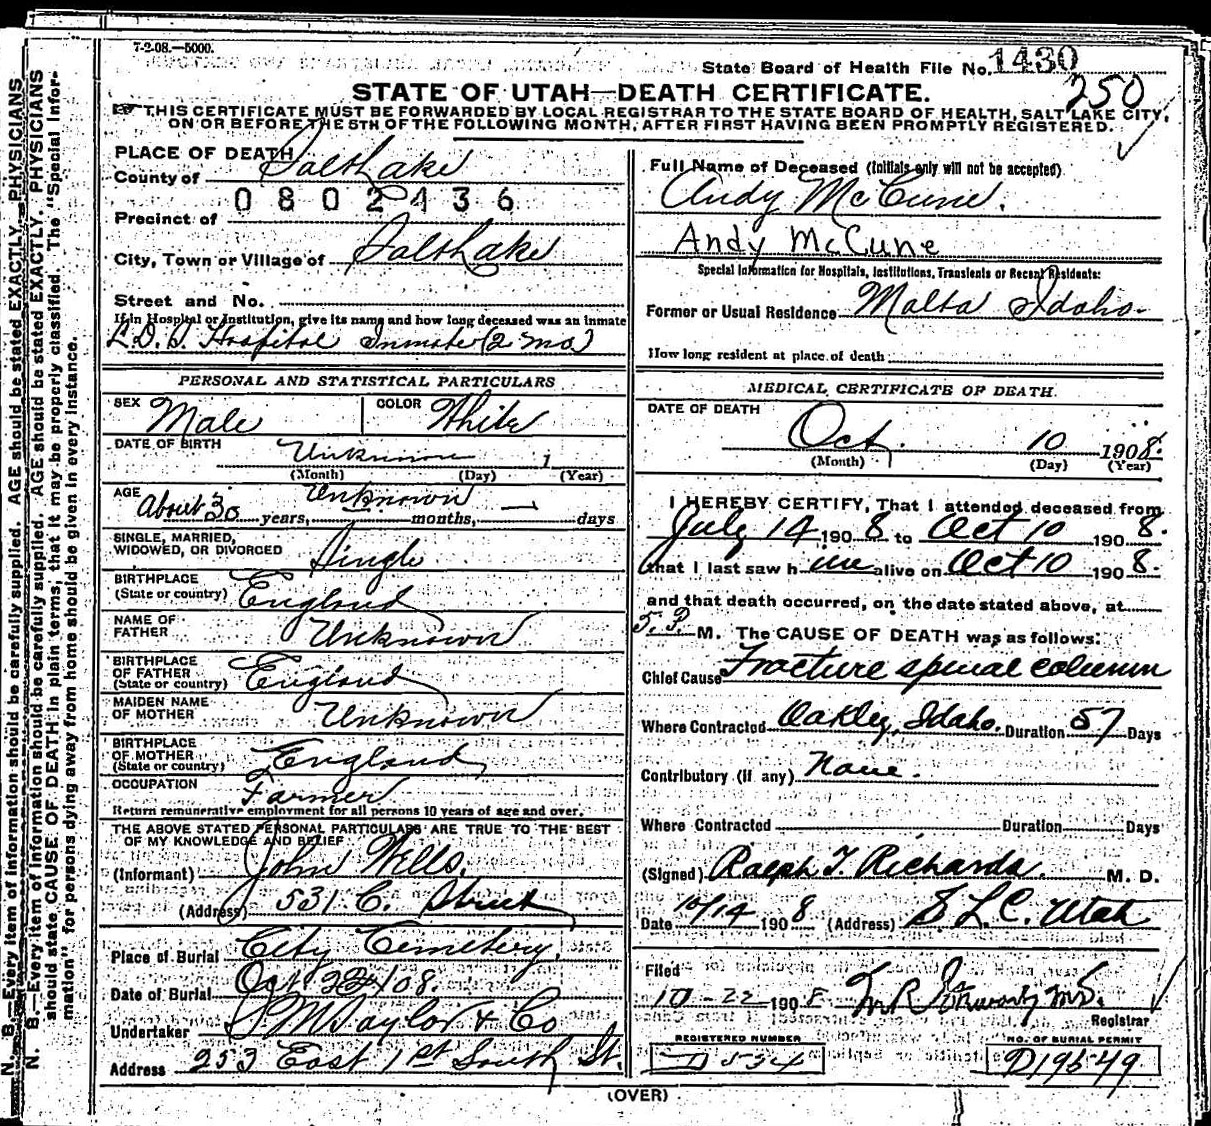 7-2-08.—5000.
State Board of Health File No. 1430
250
STATE OF UTAH—DEATH CERTIFICATE.
THIS CERTIFICATE MUST BE FORWARDED BY LOCAL REGISTRAR TO THE STATE BOARD OF HEALTH, SALT LAKE CITY,
ON OR BEFORE THE 5TH OF THE FOLLOWING MONTH, AFTER FIRST HAVING BEEN PROMPTLY REGISTERED.
N. B.—Every item of information should be carefully supplied. AGE should be stated EXACTLY. PHYSICIANS
N. B.—Every item of information should be carefully supplied. AGE should be stated EXACTLY. PHYSICIANS
should state CAUSE OF DEATH in plain terms, that it may be properly classified. The "Special Infor-
mation" for persons dying away from home should be given in every instance.
PLACE OF DEATH
County of Salt Lake
0802436
Precinct of
City, Town or Village of Salt Lake
Street and No.
If in Hospital or Institution, give its name and how long deceased was an inmate
L.D.S. Hospital Inmate (2 mo)
PERSONAL AND STATISTICAL PARTICULARS
SEX Male COLOR White
DATE OF BIRTH Unknown 1
(Month) (Day) (Year)
AGE About 30 years, Unknown months, — days
SINGLE, MARRIED,
WIDOWED, OR DIVORCED Single
BIRTHPLACE
(State or country) England
NAME OF
FATHER Unknown
BIRTHPLACE
OF FATHER
(State or country) England
MAIDEN NAME
OF MOTHER Unknown
BIRTHPLACE
OF MOTHER
(State or country) England
OCCUPATION Farmer
Return remunerative employment for all persons 10 years of age and over.
THE ABOVE STATED PERSONAL PARTICULARS ARE TRUE TO THE BEST
OF MY KNOWLEDGE AND BELIEF
(Informant) John Wells.
(Address) 531 C. Street
Place of Burial City Cemetery.
Date of Burial Oct 22 1908.
Undertaker S. M Taylor & Co
Address 253 East 1st South St.
Full Name of Deceased (Initials only will not be accepted)
Andy McCune.
Andy McCune
Special Information for Hospitals, Institutions, Transients or Recent Residents:
Former or Usual Residence Malta Idaho.
How long resident at place of death
MEDICAL CERTIFICATE OF DEATH.
DATE OF DEATH
Oct. 10 1908.
(Month) (Day) (Year)
I HEREBY CERTIFY, That I attended deceased from
July 14 1908 to Oct 10 1908.
that I last saw him alive on Oct 10 1908.
and that death occurred, on the date stated above, at
5. P. M. The CAUSE OF DEATH was as follows:
Chief Cause Fracture spinal column
Where Contracted Oakley, Idaho. Duration 57 Days
Contributory (if any) None.
Where Contracted Duration Days
(Signed) Ralph T. Richards. M. D.
Date 10/14 1908 (Address) S L C. Utah
Filed
10-22 1908 M.D.
Registrar
REGISTERED NUMBER
D 534
NO. OF BURIAL PERMIT
D19549
(OVER)